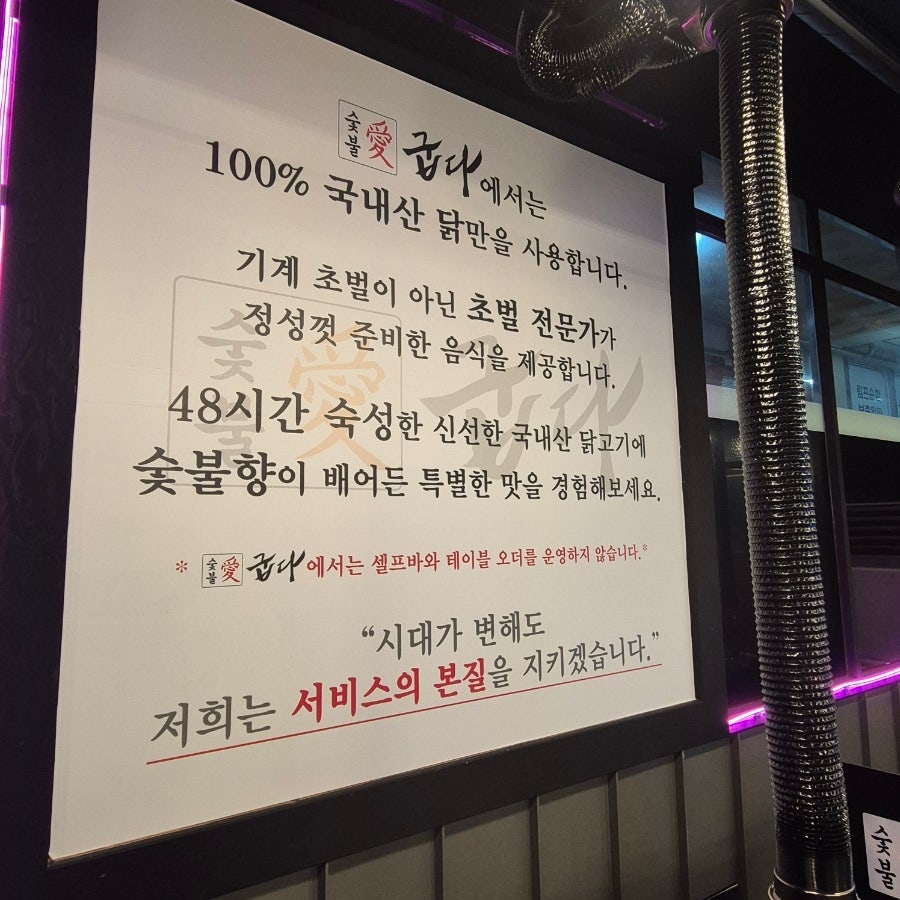 숯불 愛 굽다에서는
100% 국내산 닭만을 사용합니다.
기계 초벌이 아닌 초벌 전문가가
정성껏 준비한 음식을 제공합니다.
48시간 숙성한 신선한 국내산 닭고기에
숯불향이 배어든 특별한 맛을 경험해보세요.
숯불 愛 굽다
* 숯불 愛 굽다에서는 셀프바와 테이블 오더를 운영하지 않습니다.*
“시대가 변해도
저희는 서비스의 본질을 지키겠습니다.”
숯불